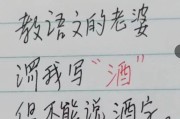 教语文的老婆
让我写“酒”
但不能说酒字。